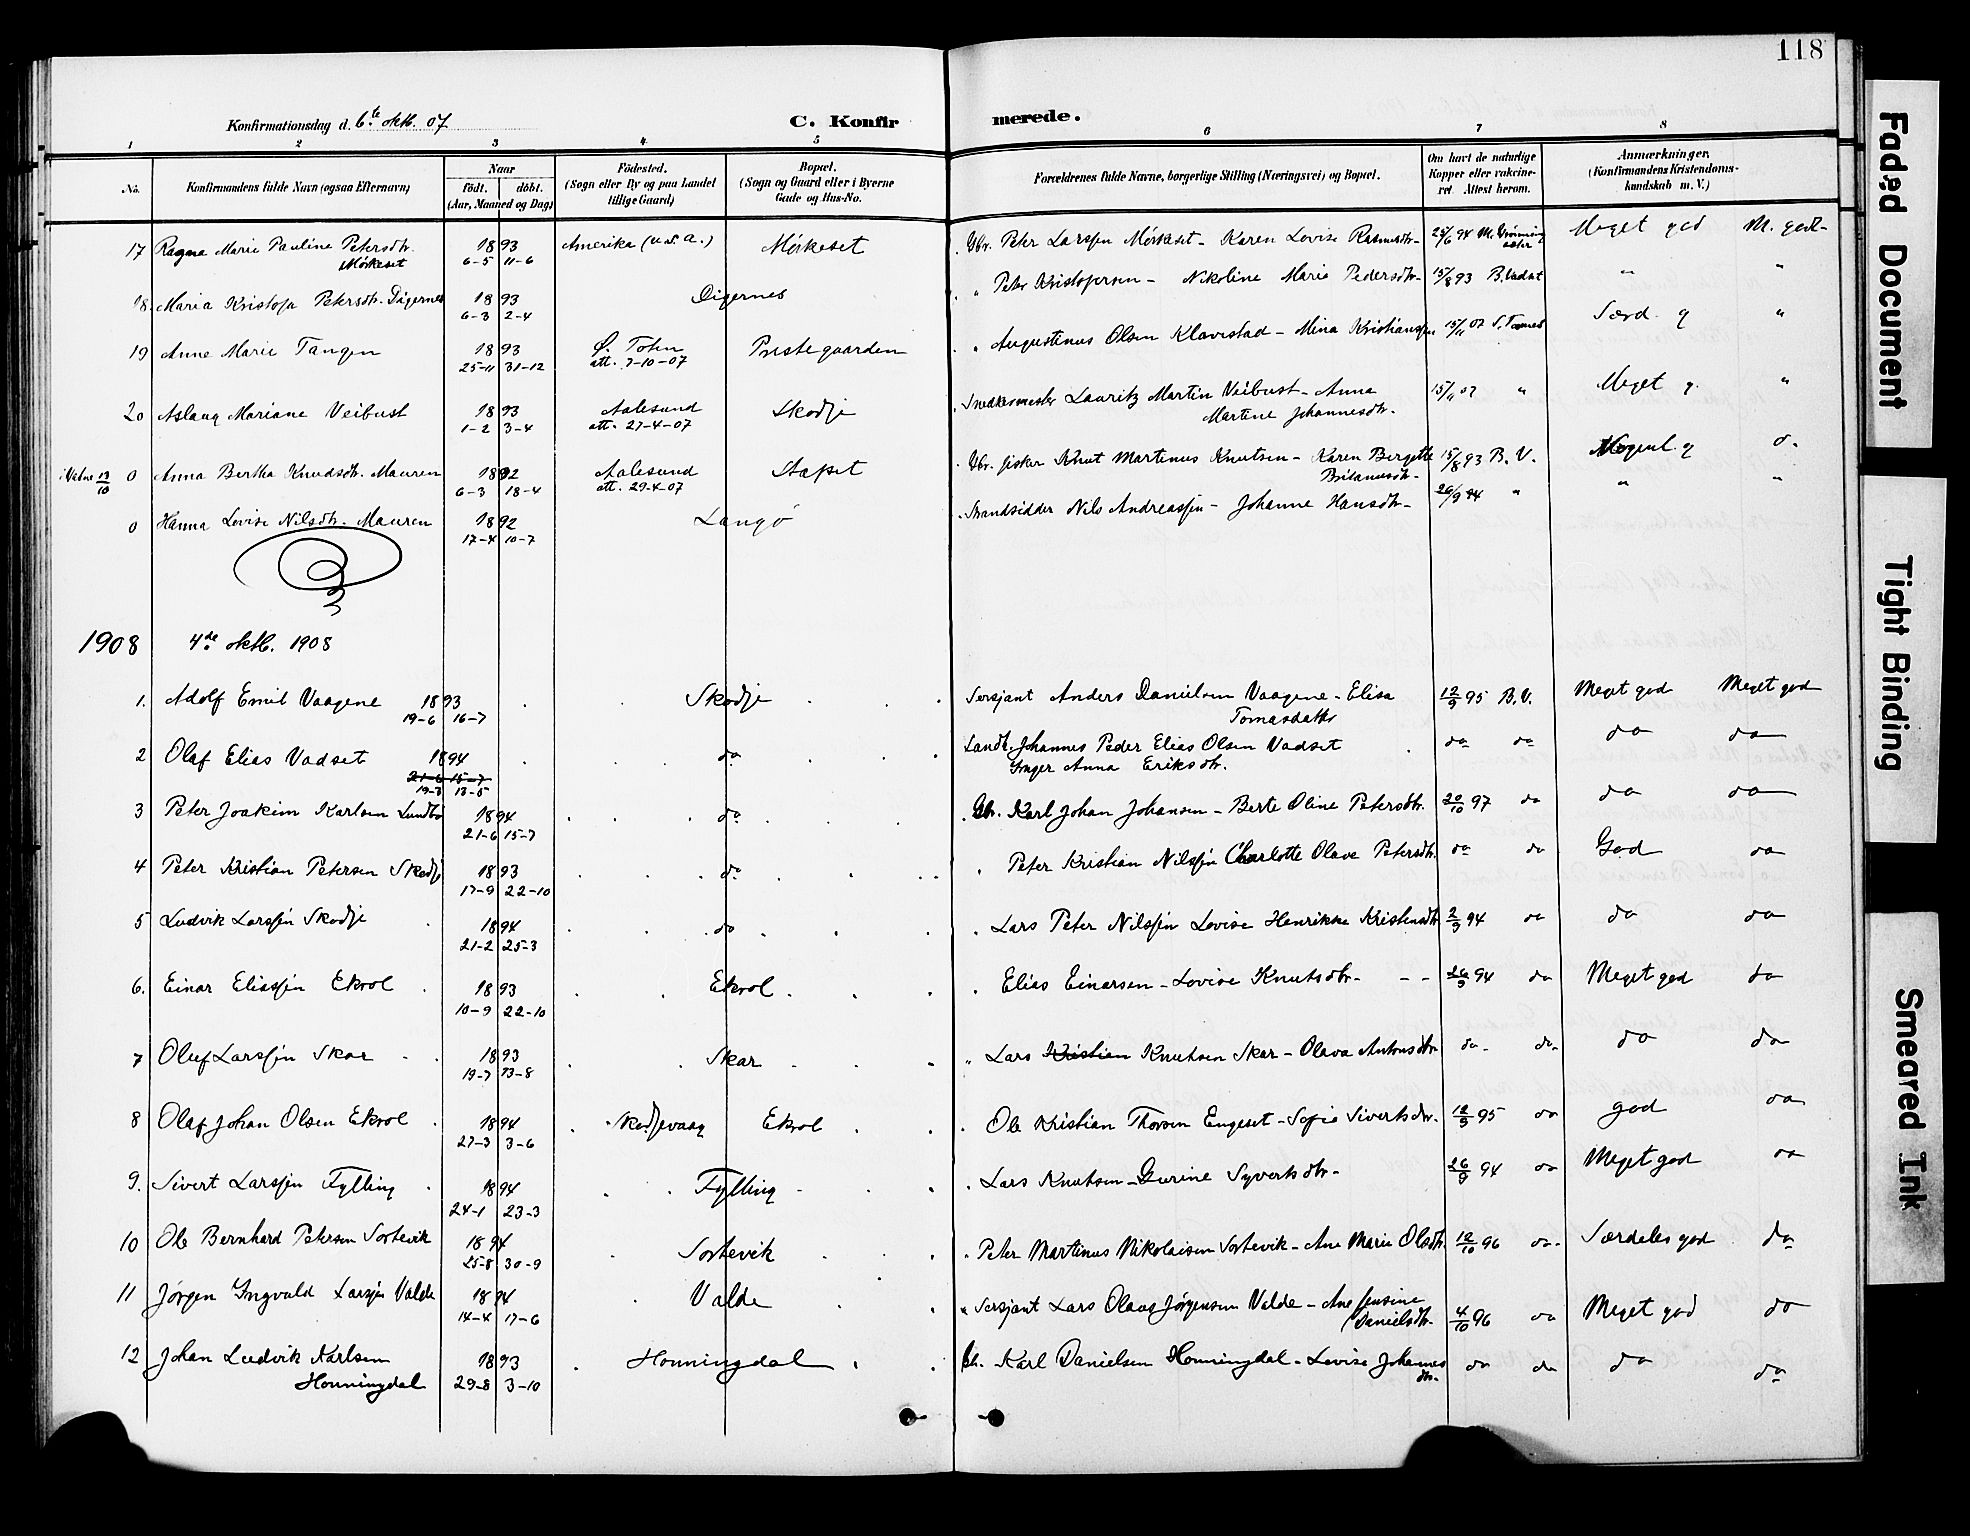 118
Konfirmationsdag d. 6.te oktb. 07
C. Konfir merede.
1 2 3 4 5 6 7 8
No.
Konfirmandens fulde Navn (ogsaa Efternavn)
Naar
födt. döbt.
(Aar, Maaned og Dag)
Födested.
(Sogn eller By og paa Landet
tillige Gaard)
Bopæl.
(Sogn og Gaard eller i Byerne
Gade og Hus-No.
Forældrenes fulde Navne, borgerlige Stilling (Næringsvei) og Bopæl.
Om havt de naturlige
Kopper eller vakcine-
ret. Attest herom.
Anmærkninger.
(Konfirmandens Kristendoms-
kundskab m. V.)
17 Ragna Marie Pauline Petersdtr. 1893 Amerika (U.S.A.) Mörkeset Gbr. Peter Larssen Mörkeset - Karen Lovise Rasmusdtr- Meget god M. god-
Mörkeset 6-5 11-6
18. Maria Kristofa Petersdtr. Digernes 1893 Digernes " Peter Kristofersen - Nikoline Marie Pedersdtr- 15/8 93 B. Vadset " "
6-3 2-4
19 Anne Marie Tangen 1893 Ö. Toten Prestegaarden " Augustinus Olsen Klavestad - Mina Kristianssen Særd. g "
25-11 31-12 att. 7-10-07
20 Aslaug Mariane Veibust 1893 Aalesund Skodje Snedkermester Lauritz Martin Veibust - Anna Meget g. "
1-2 3-4 att. 27-4-07 Martine Johannesdtr.
0 Anna Bertha Knudsdtr. Mauren 1892 Aalesund Stapset Gbr. fisker Knut Martinus Knutsen - Karen Bergitte 15/8 93 B. V. Meget g
6-3 18-4 att. 29-4-07
0 Hanna Lovise Nilsdtr. Mauren 1892 Langö Strandsidder Nils Andreassen - Johanne Hansdtr- 26/9 94 " " "
17-4 10-7
1908 4de oktb. 1908
1. Adolf Emil Vaagene 1893 Skodje Sersjant Anders Danielsen Vaagene - Elisa 12/9 95 B.V. Meget god Meget god
19-6 16-7 Tomasdatter
2 Olaf Elias Vadset 1894 do Landb. Johannes Peder Elias Olsen Vadset do do do do
21-6 15-7 Inger Anna Eriksdtr.
19-3 13-5
3 Peter Joakim Karlsen Lundbö 1894 do Gbr. Karl Johan Johansen - Berte Oline Petersdtr. 20/10 97 do do do
21-6 15-7
4 Peter Kristian Petersen Skodje 1893 do " Peter Kristian Nilssen Charlotte Olava Petersdtr. do do God do
17-9 22-10
5 Ludvik Larssen Skodje 1894 do " Lars Peter Nilssen Lovise Henrikke Kristensdtr 2/9 94 do do do
21-2 25-3
6. Einar Eliassen Ekrol 1893 Ekrol " Elias Einarsen - Lovise Knutsdtr- 26/9 94 do Meget god do
10-9 22-10
7 Oluf Larssen Skar 1893 Skar " Lars Kristian Knutsen Skar - Olava Antonsdtr do do do do
19-7 13-8
8 Olaf Johan Olsen Ekrol 1894 Skodjevaag Ekrol " Ole Kristian Thorsen Engeset - Sofie Sivertsdtr. 12/9 95 do god do
27-3 3-6
9. Sivert Larssen Fylling 1894 Fylling " Lars Knutsen - Gurine Syvertsdtr- 26/9 94 do Meget god do
24-1 23-3
10 Ole Bernhard Petersen Sortevik 1894 Sortevik " Peter Martinus Nikolaisen Sortevik - Ane Marie Olsdtr. 12/10 96 do Særdeles god do
25-8 30-9
11 Jörgen Ingvald Larssen Valde 1894 Valde " Sersjant Lars Olaus Jörgensen Valde - Ane Jensine 4/10 96 do Meget god do
14-4 17-6 Danielsdtr.
12 Johan Ludvik Karlsen 1893 Honningdal Gb. Karl Danielsen Honningdal - Lovise Johannes do do do do
Honningdal 29-8 3-10 dtr.
Faded Document
Tight Binding
Smeared Ink